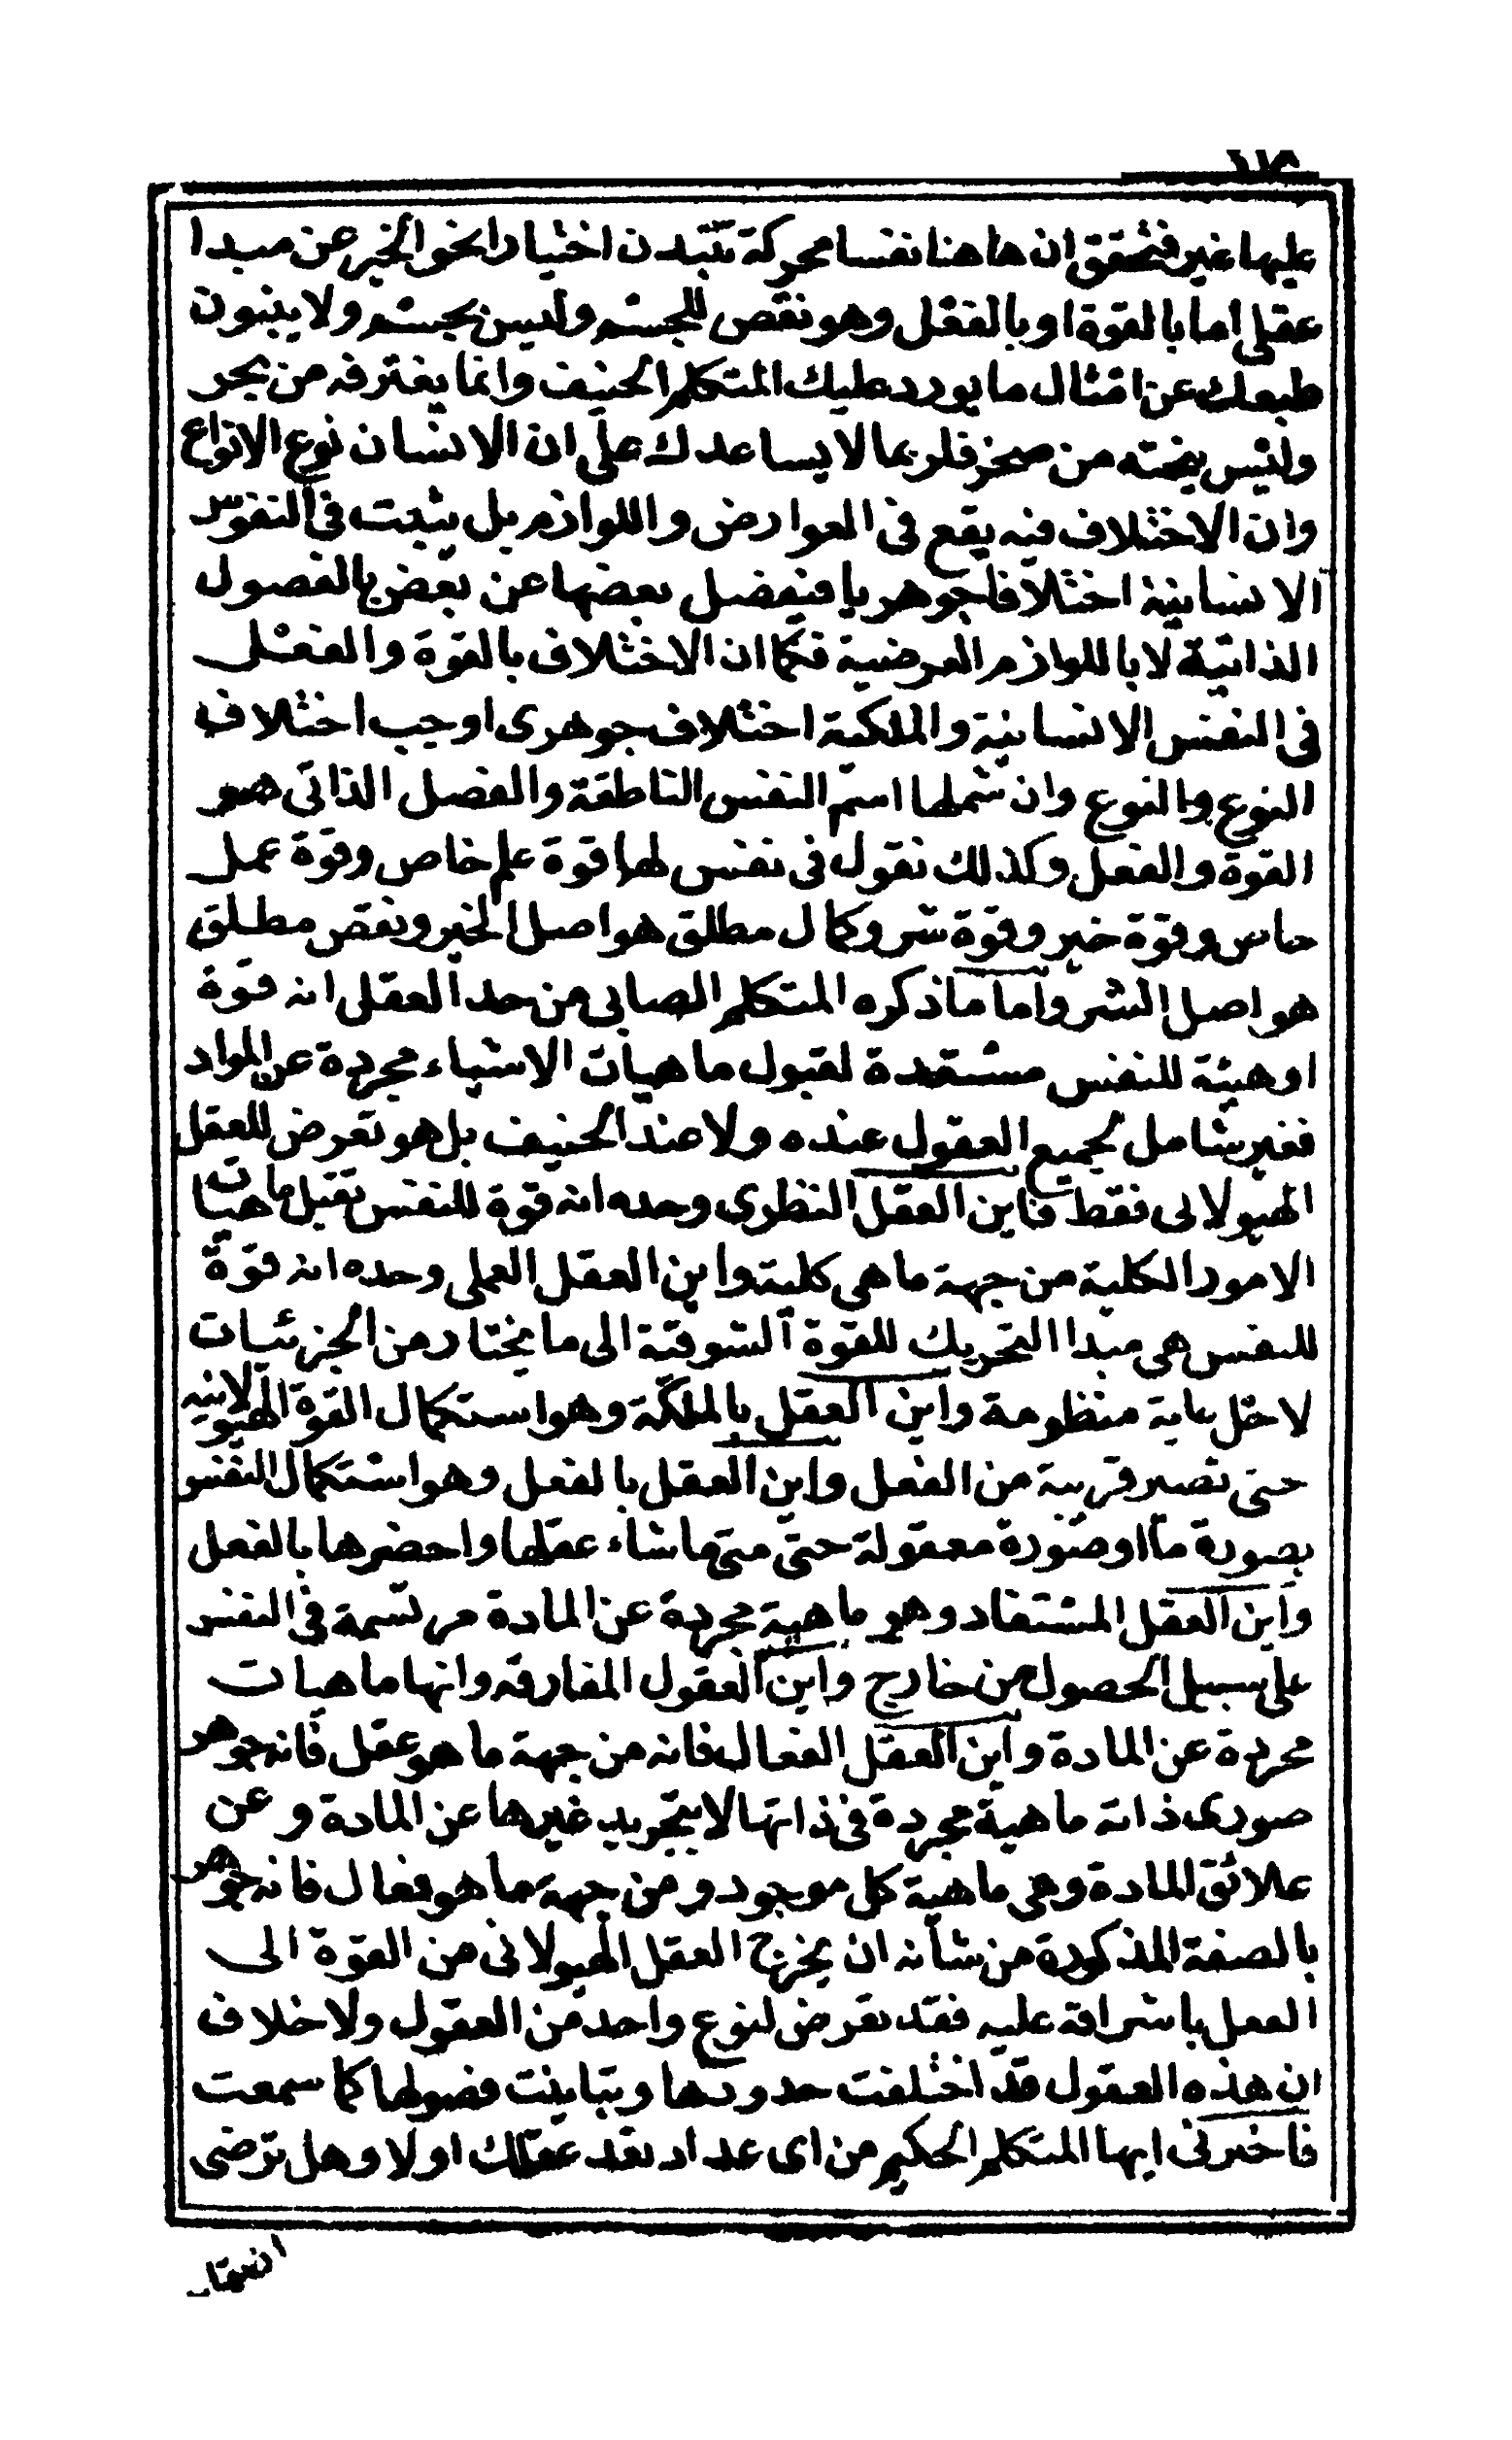 عليها غير فتحقق ان هاهنا نفسا محركة للبدن اختيارا نحو الخير عن مبدا
عقلى اما بالقوة او بالفعل وهو نقص للجسم وليس بجسم ولا ينبون
طبعك عن امثال ما يورد عليك المتكلم الحنيف وانما يغترفه من بحر
وليس ينحته من صخر فلربما لا يساعدك على ان الانسان نوع الانواع
وان الاختلاف فيه يقع فى العوارض واللوازم بل يثبت فى النفوس
الانسانية اختلافا جوهريا فيفصل بعضها عن بعض بالفصول
الذاتية لا باللوازم العرضية فكما ان الاختلاف بالقوة والفعل
فى النفس الانسانية والملكية اختلاف جوهرى اوجب اختلاف
النوع والنوع وان شملها اسم النفس الناطقة والفصل الذاتى هو
القوة والفعل وكذلك نقول فى نفس لها قوة علم خاص وقوة عمل
خاص وقوة خير وقوة شر وكمال مطلق هو اصل الخير ونقص مطلق
هو اصل الشر واما ما ذكره المتكلم الصابى من حد العقل انه قوة
او هيئة للنفس مستعدة لقبول ماهيات الاشياء مجردة عن المواد
فغير شامل لجميع العقول عنده ولا عند الحنيف بل هو تعرض للعقل
الهيولانى فقط فاين العقل النظرى وحده انه قوة للنفس تقبل ماهيات
الامور الكلية من جهة ما هى كلية واين العقل العملى وحده انه قوة
للنفس هى مبدا التحريك للقوة الشوقية الى ما يختار من الجزئيات
لاجل غاية مظنومة واين العقل بالملكة وهو استكمال القوة الهيولانية
حتى تصير قريبة من الفعل واين العقل بالفعل وهو استكمال النفس
بصورة ما او صورة معقولة حتى متى ما شاء عقلها واحضرها بالفعل
واين العقل المستفاد وهو ماهية مجردة عن المادة مرتسمة فى النفس
على سبيل الحصول من خارج واين العقول المفارقة وانها ماهيات
مجردة عن المادة واين العقل الفعال فانه من جهة ما هو عقل فانه جوهر
صورى ذاته ماهية مجردة فى ذاتها لا بتجريد غيرها عن المادة وعن
علائق المادة وهى ماهية كل موجود ومن جهة ما هو فعال فانه جوهر
بالصفة المذكورة من شأنه ان يخرج العقل الهيولانى من القوة الى
الفعل باشراقه عليه فقد تعرض لنوع واحد من العقول ولا خلاف
ان هذه العقول قد اختلفت حدودها وتباينت فصولها كما سمعت
فاخبرنى ايها المتكلم الحكيم من اى عداد تعد عقلك اولا وهل ترضى